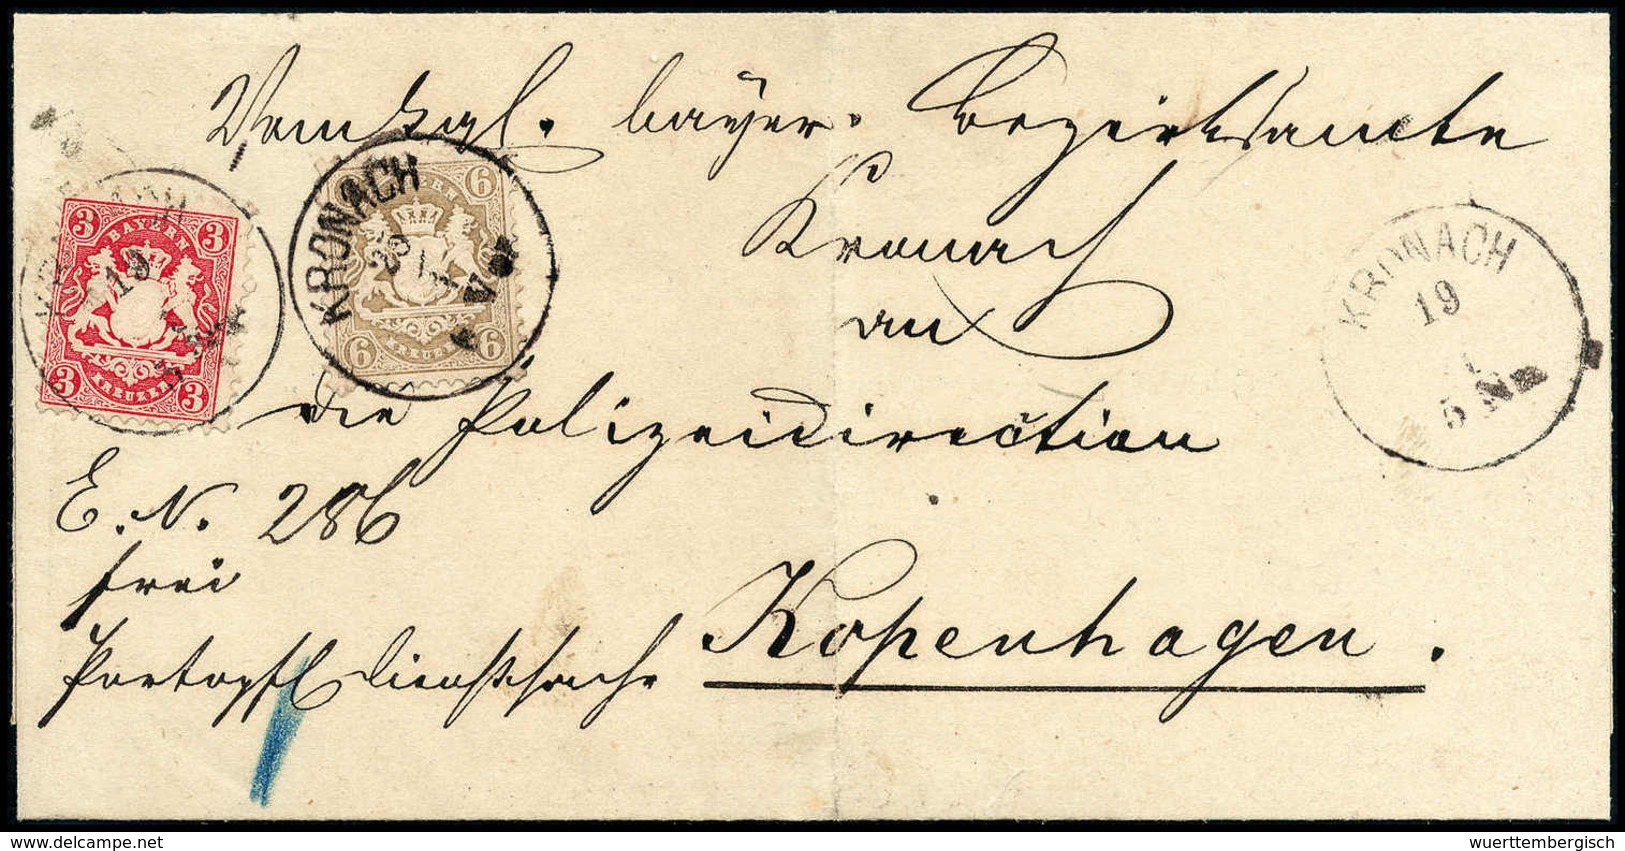 Vom kgl. bayer. Bezirksamte
Kronach
an
die Polizeidirection
Kopenhagen.
E. N. 286
frei
Portopfl Dienstsache
3 3
BAYERN
3 3
KREUZER
KRONACH
19
6
BAYERN
6 6
KREUZER
KRONACH
KRONACH
19
5 Nm
www.delcampe.net
wuerttembergisch